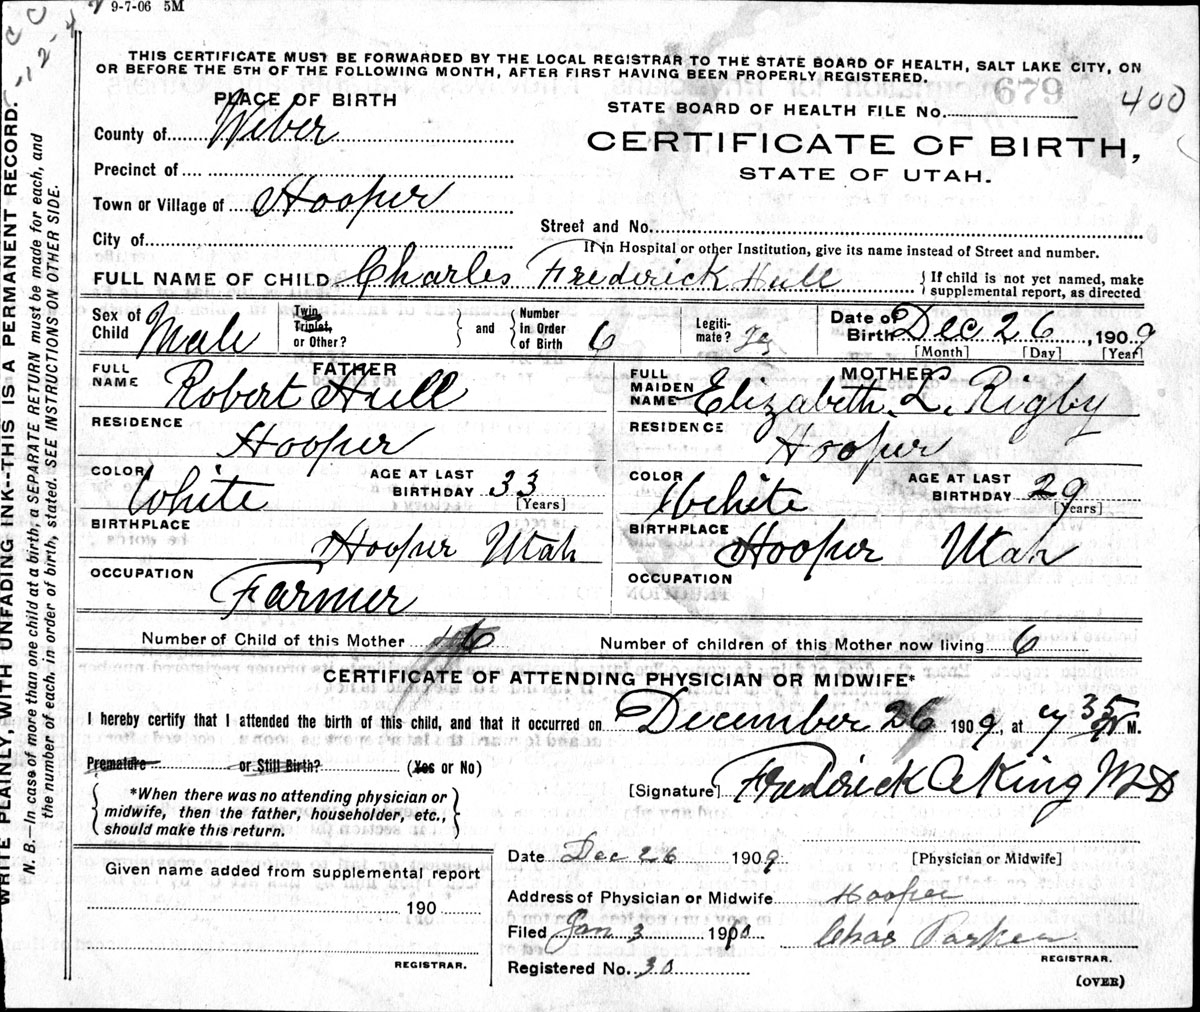 9-7-06 5M
THIS CERTIFICATE MUST BE FORWARDED BY THE LOCAL REGISTRAR TO THE STATE BOARD OF HEALTH, SALT LAKE CITY, ON
OR BEFORE THE 5TH OF THE FOLLOWING MONTH, AFTER FIRST HAVING BEEN PROPERLY REGISTERED.
PLACE OF BIRTH
679
400
STATE BOARD OF HEALTH FILE No.
County of Weber
CERTIFICATE OF BIRTH,
STATE OF UTAH.
Precinct of
Town or Village of Hooper
Street and No.
City of
If in Hospital or other Institution, give its name instead of Street and number.
FULL NAME OF CHILD Charles Frederick Hull
{ If child is not yet named, make
supplemental report, as directed
Sex of Child Male
Twin, Triplet, or Other? } and { Number in Order of Birth 6
Legiti- mate? Yes
Date of Birth Dec 26, 1909
[Month] [Day] [Year]
FATHER
FULL NAME Robert Hull
RESIDENCE Hooper
COLOR White AGE AT LAST BIRTHDAY 33 [Years]
BIRTHPLACE Hooper Utah
OCCUPATION Farmer
MOTHER
FULL MAIDEN NAME Elizabeth L. Rigby
RESIDENCE Hooper
COLOR White AGE AT LAST BIRTHDAY 29 [Years]
BIRTHPLACE Hooper Utah
OCCUPATION
Number of Child of this Mother 6 Number of children of this Mother now living 6
CERTIFICATE OF ATTENDING PHYSICIAN OR MIDWIFE*
I hereby certify that I attended the birth of this child, and that it occurred on December 26 1909, at 7 35 M.
Premature or Still Birth? (Yes or No)
[Signature] Frederick A King MD
{ *When there was no attending physician or
midwife, then the father, householder, etc.,
should make this return. }
Date Dec 26 1909
[Physician or Midwife]
Given name added from supplemental report
190
REGISTRAR.
Address of Physician or Midwife Hooper
Filed Jan 3 1910 Chas Parker
REGISTRAR.
Registered No. 30
(OVER)
WRITE PLAINLY, WITH UNFADING INK--THIS IS A PERMANENT RECORD.
N. B.—In case of more than one child at a birth, a SEPARATE RETURN must be made for each, and
the number of each, in order of birth, stated. SEE INSTRUCTIONS ON OTHER SIDE.